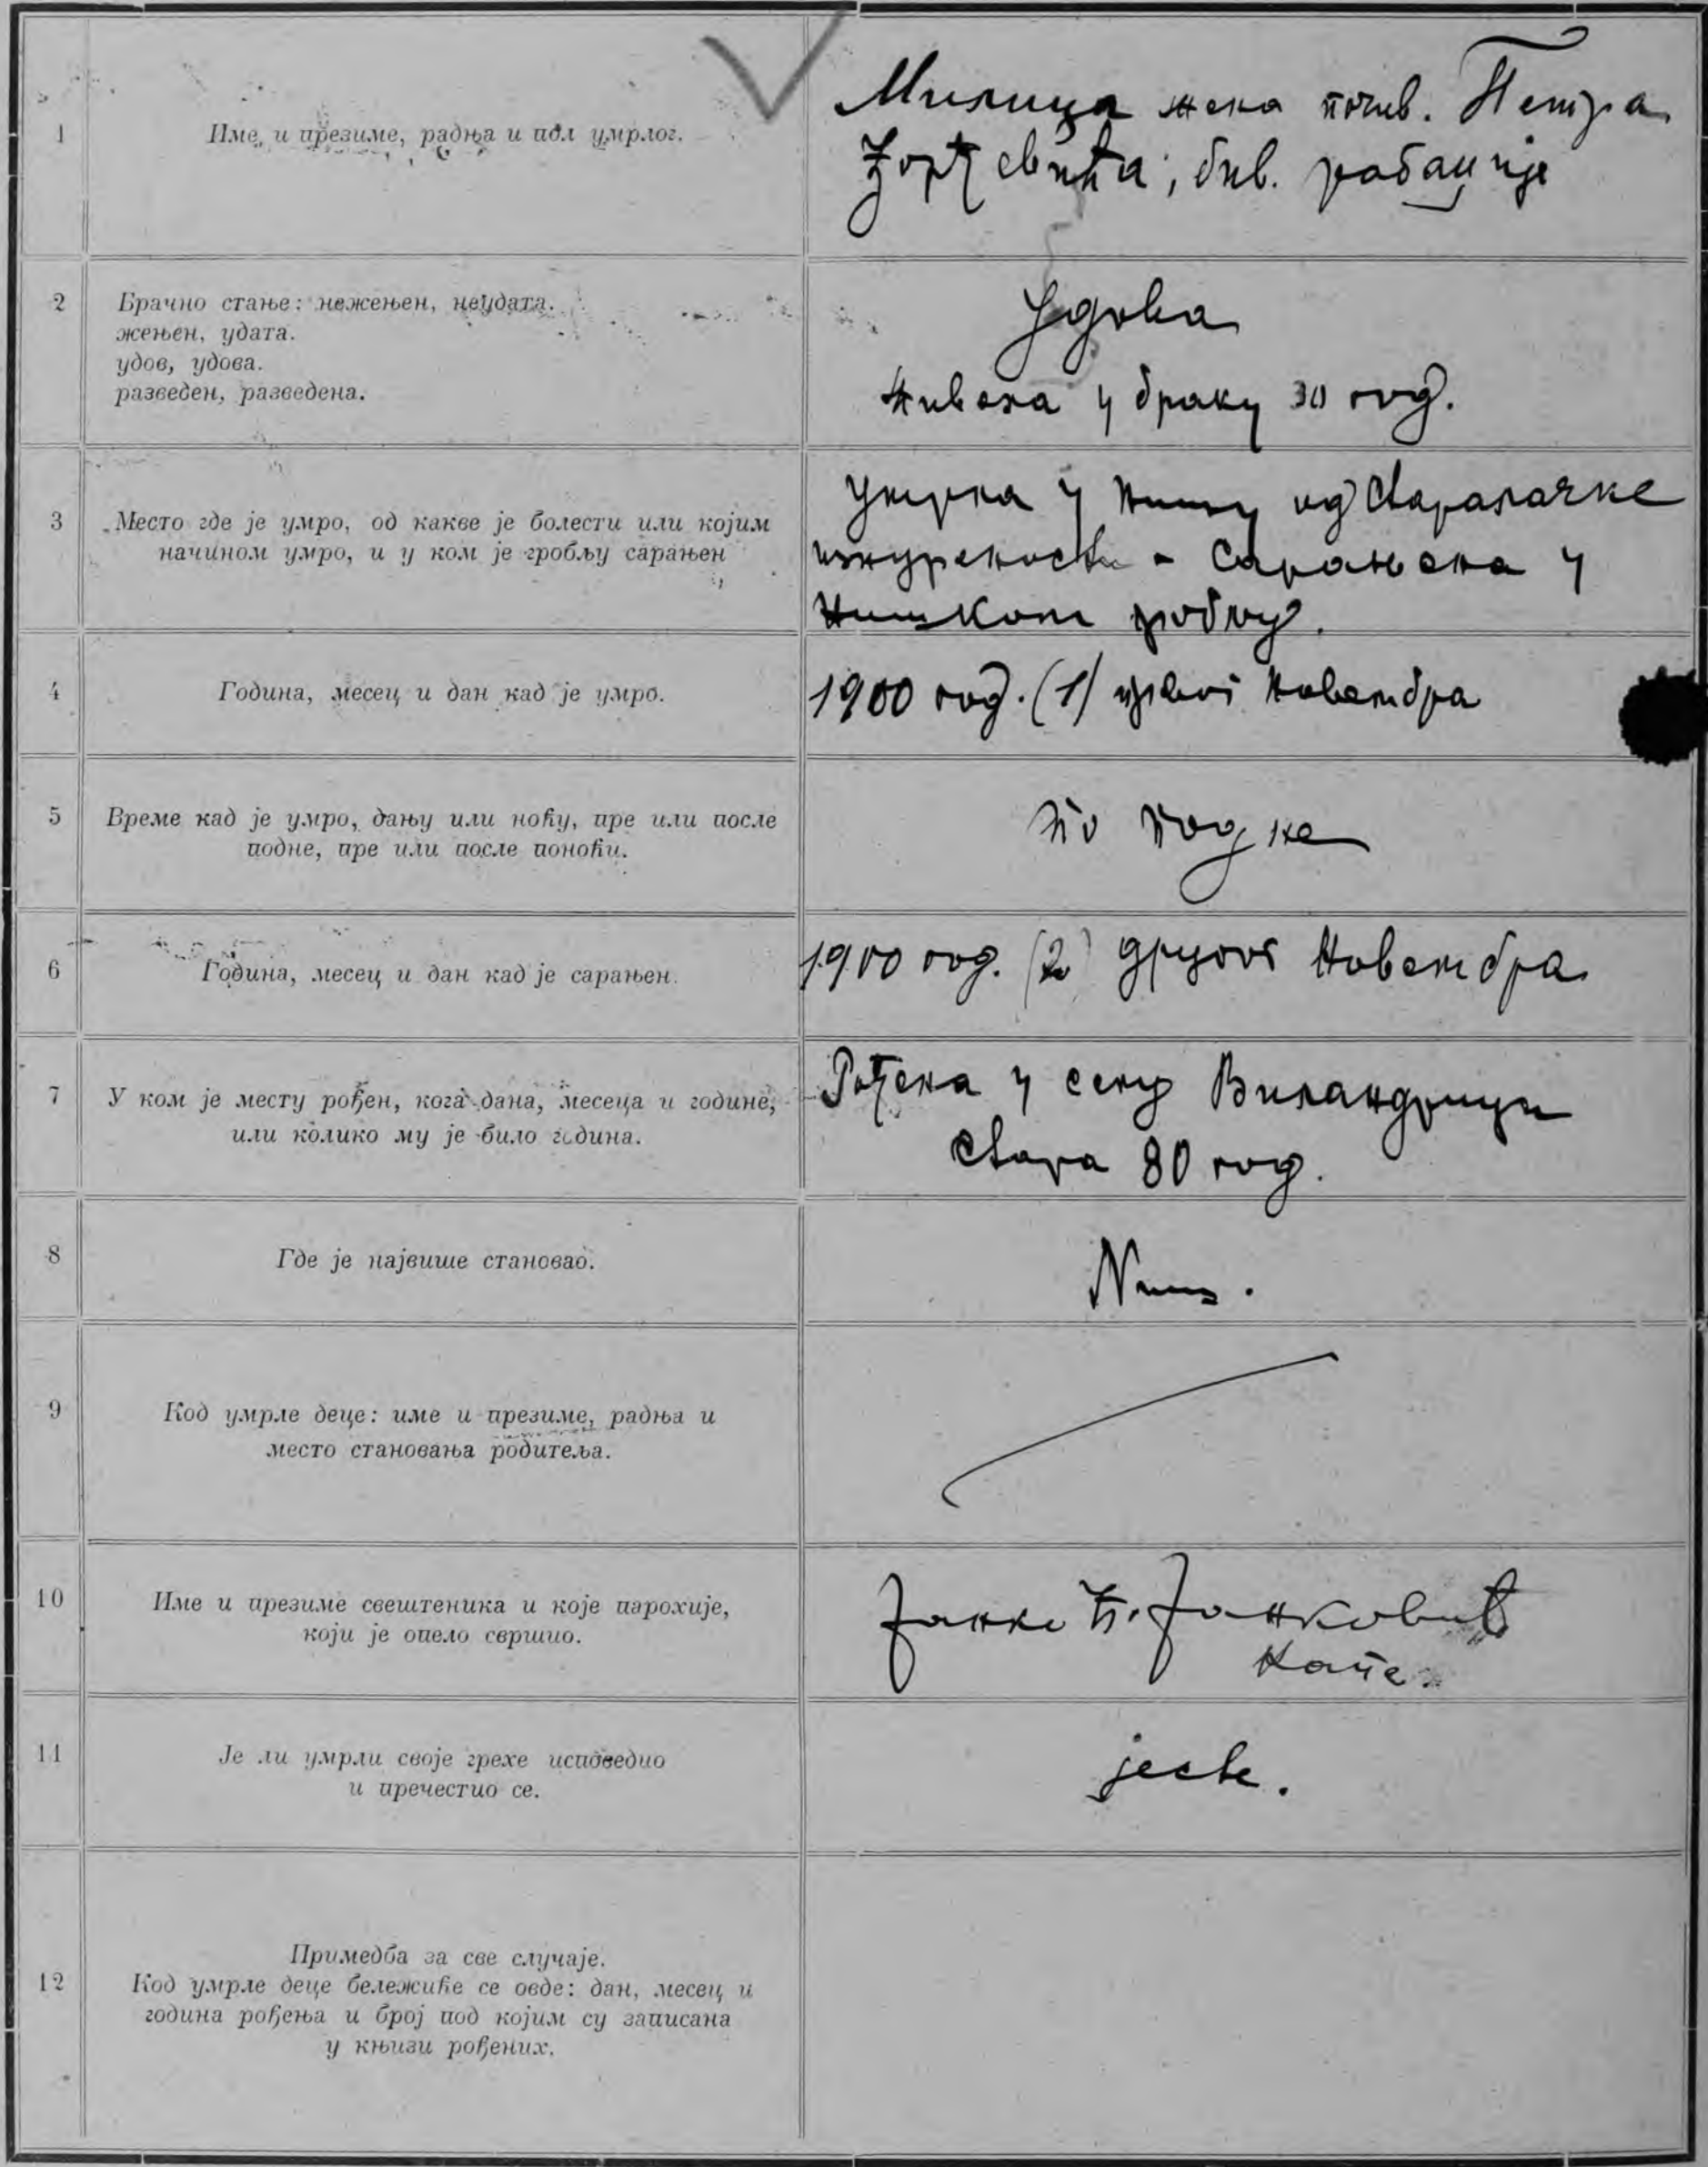 1
Име и презиме, радња и пол умрлог.
Милица жена почив. Петра
Ђорђевића, бив. рабаџије
2
Брачно стање: нежењен, неудата.
жењен, удата.
удов, удова.
разведен, разведена.
Удова
Живела у браку 30 год.
3
Место где је умро, од какве је болести или којим
начином умро, и у ком је гробљу сарањен
Умрла у Нишу од старачке
изнурености - Сарањена у
Нишком гробљу.
4
Година, месец и дан кад је умро.
1900 год. (1) првог Новембра
5
Време кад је умро, дању или ноћу, пре или после
подне, пре или после поноћи.
По подне
6
Година, месец и дан кад је сарањен.
1900 год. (2) другог Новембра
7
У ком је месту рођен, кога дана, месеца и године,
или колико му је било година.
Рођена у селу Виландрици
Стара 80 год.
8
Где је највише становао.
Ниш.
9
Код умрле деце: име и презиме, радња и
место становања родитеља.
10
Име и презиме свештеника и које парохије,
који је опело свршио.
Јанко Ђ. Јанковић
11
Је ли умрли своје грехе исповедио
и причестио се.
јесте.
12
Примедба за све случаје.
Код умрле деце бележиће се овде: дан, месец и
година рођења и број под којим су записана
у књизи рођених.